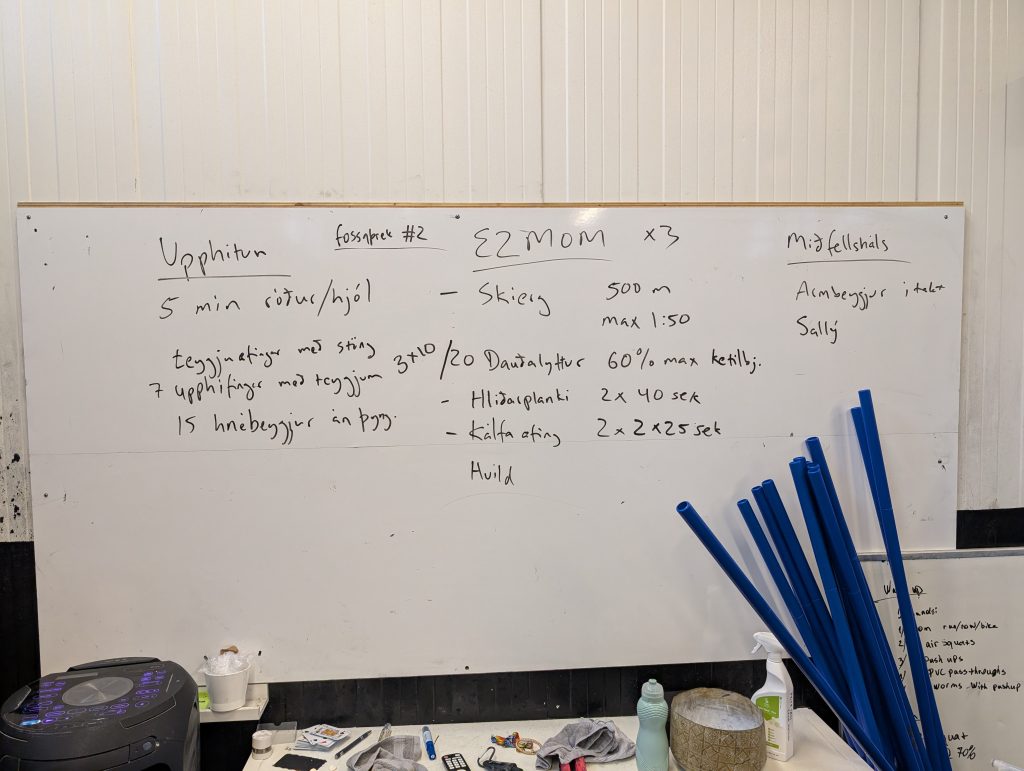 Upphitun
5 min róður/hjól
teygjuæfingar með stöng
7 upphífingar með teygjum 3+10
15 hnébeygjur án þyng.
fossaþrek #2
E2MOM x3
- Skierg 500 m
max 1:50
/20 Dauðalyftur 60% max ketilbj.
- Hliðarplanki 2 x 40 sek
- Kálfa æfing 2 x 2 x 25 sek
Hvíld
Miðfellsháls
Armbeygjur í takt
Sallý
run/row/bike
air squats
push ups
PVC pass throughs
worms with pushup
70%